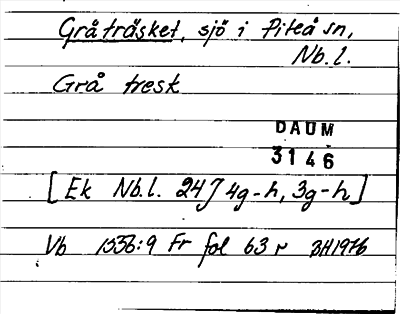 Gråträsket, sjö i Piteå sn,
Nb.l.
Grå tresk
DAUM
3146
[Ek Nb.l. 24J 4g-h, 3g-h]
Vb 1556:9 Fr fol 63 r BH1976